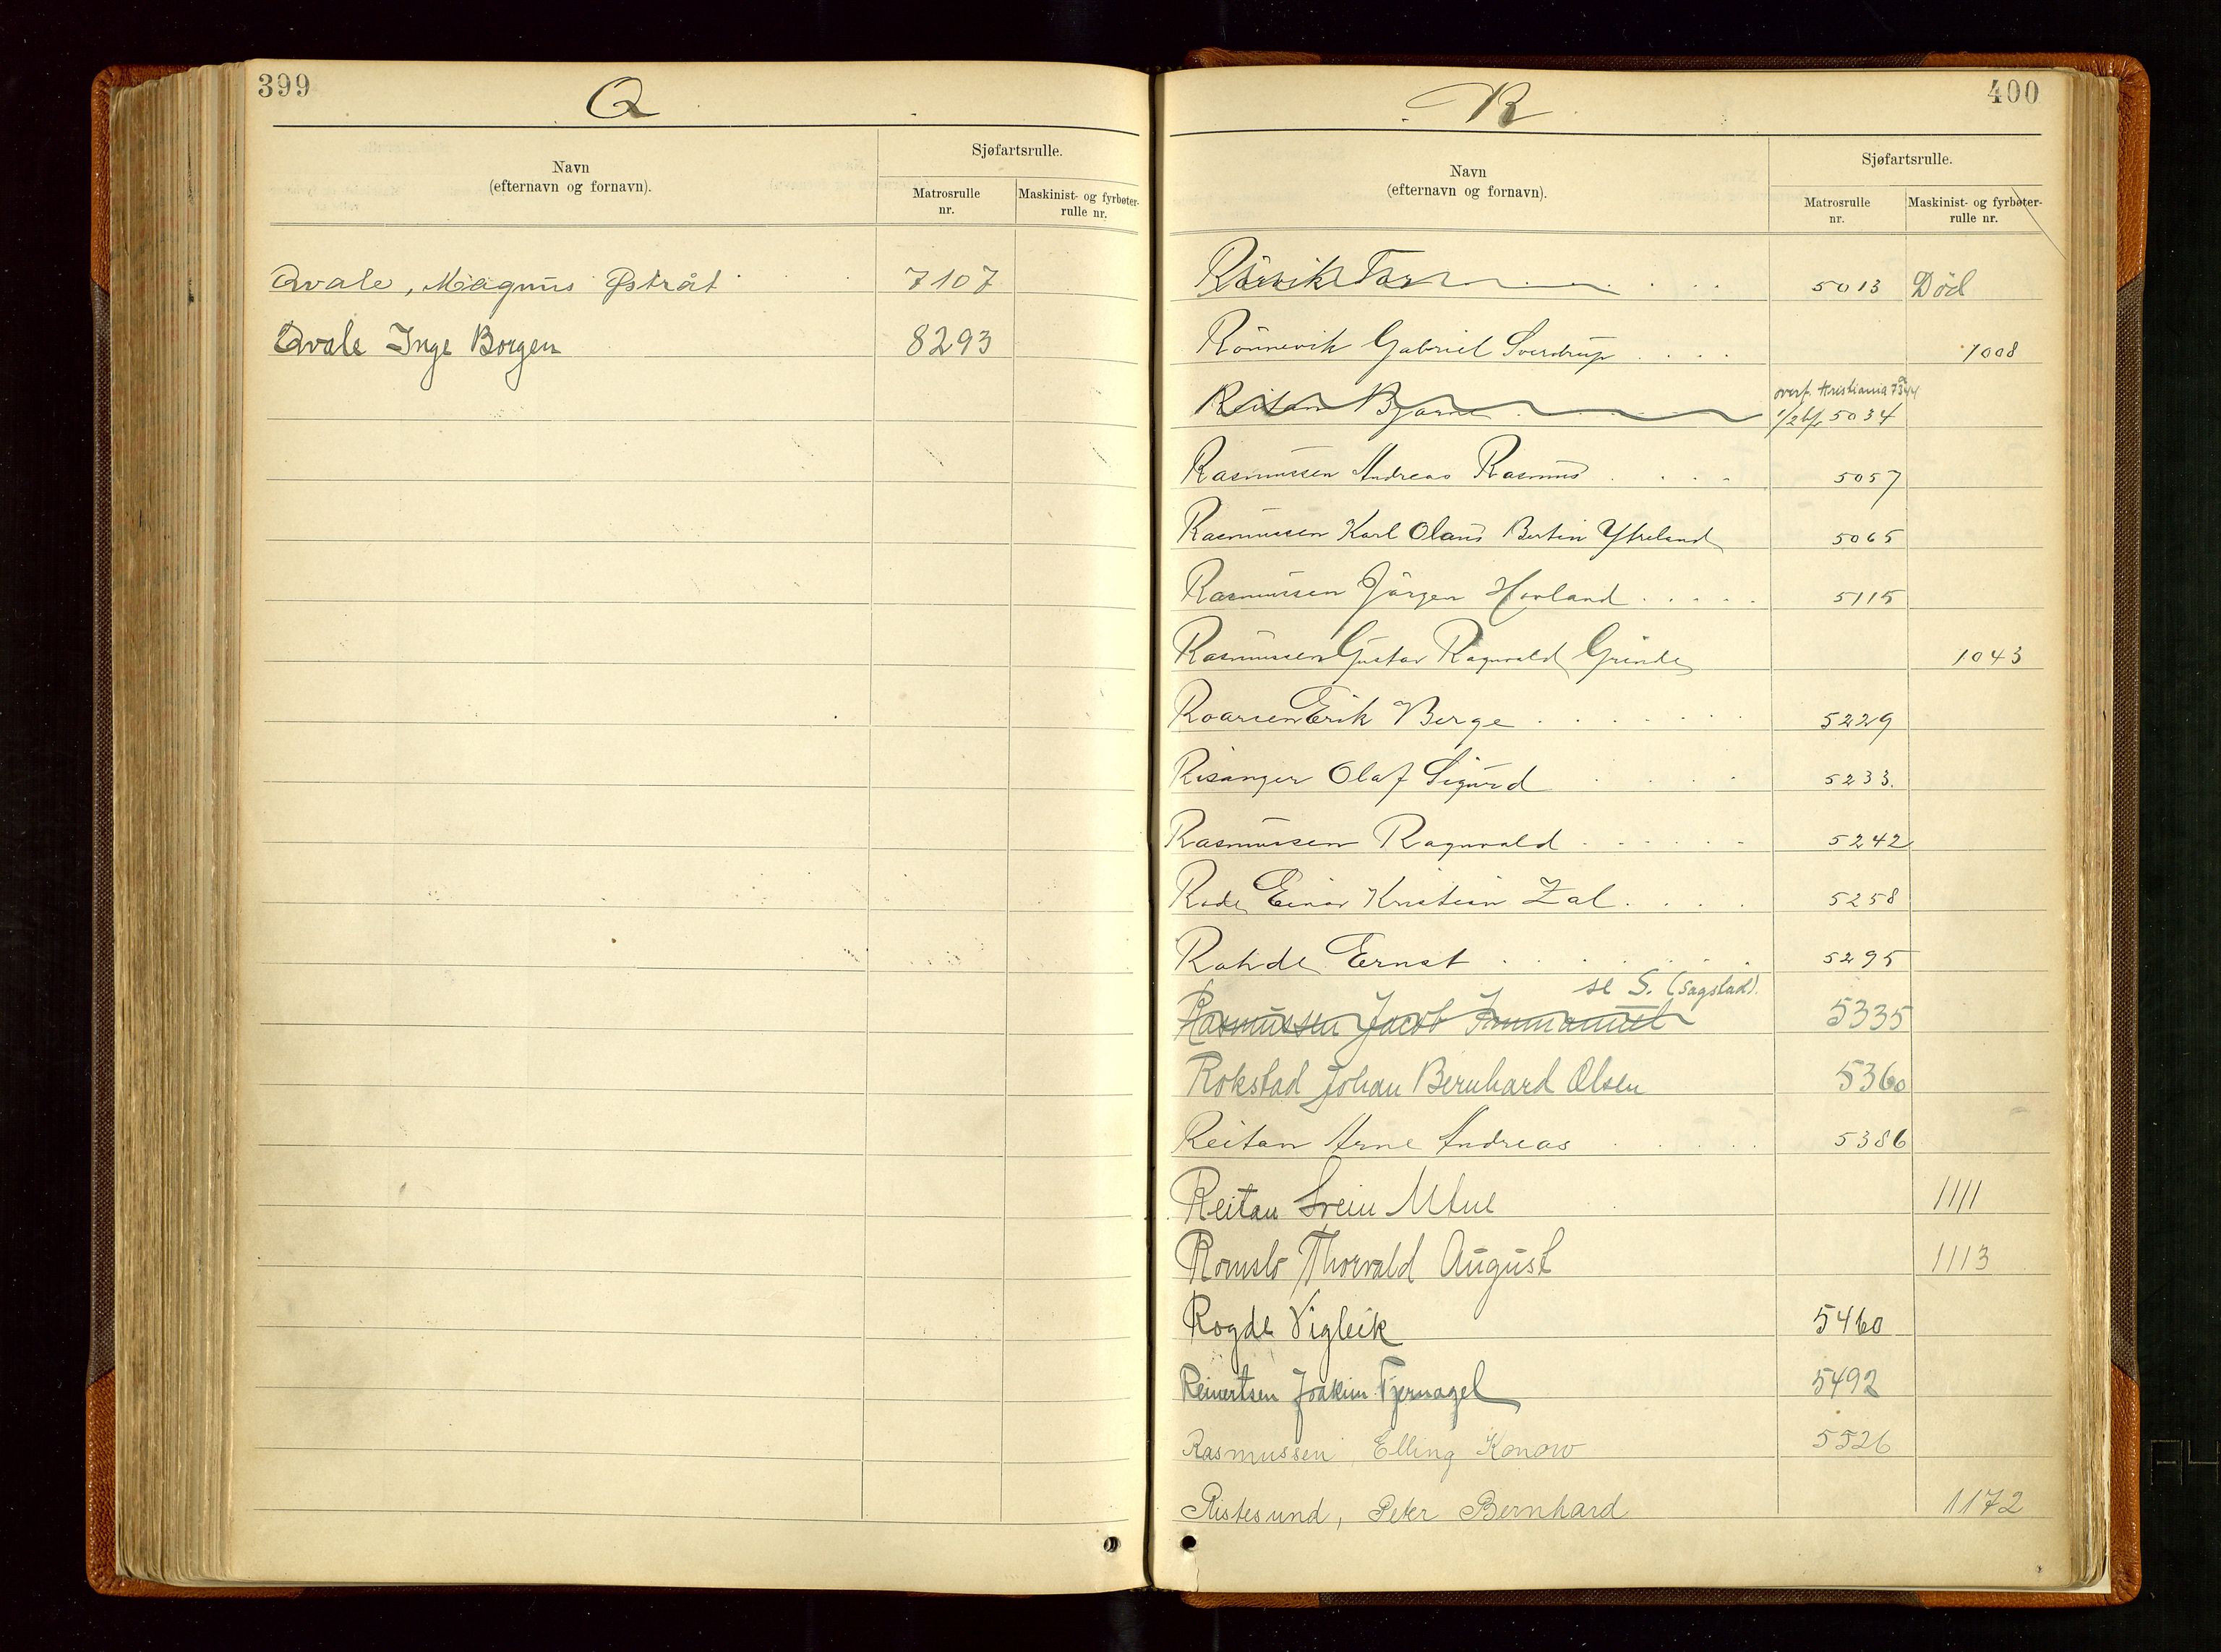 399
Q
Navn
(efternavn og fornavn).
Sjøfartsrulle.
Matrosrulle
nr.
Maskinist- og fyrbøter-
rulle nr.
Qvale, Magnus Østråt 7107
Qvale Inge Borgen 8293
400
R
Navn
(efternavn og fornavn).
Sjøfartsrulle.
Matrosrulle
nr.
Maskinist- og fyrbøter-
rulle nr.
Rørvik Tor 5013 Død
Rönnevik Gabriel Sverdrup 1008
overf. Kristiania
Reitan Bjarne 5034
Rasmussen Andreas Rasmus 5057
Rasmussen Karl Olaus Bertin Ytreland 5065
Rasmussen Jörgen Hovland 5115
Rasmussen Gustav Ragnvald Grinde 1043
Roarsen Erik Berge 5229
Risanger Olaf Sigurd 5233.
Rasmussen Ragnvald 5242
Rode Einar Kristian Zal 5258
Rohde Ernst 5295
se S. (Sagstad).
Rasmussen Jacob Immanuel 5335
Rokstad Johan Bernhard Olsen 5360
Reitan Arne Andreas 5386
Reitan Svein 1111
Romslo Thorvald August 1113
Rogde Vigleik 5460
Reinertsen Joakim Tjernagel 5492
Rasmussen, Elling Konow 5526
Ristesund, Peter Bernhard 1172